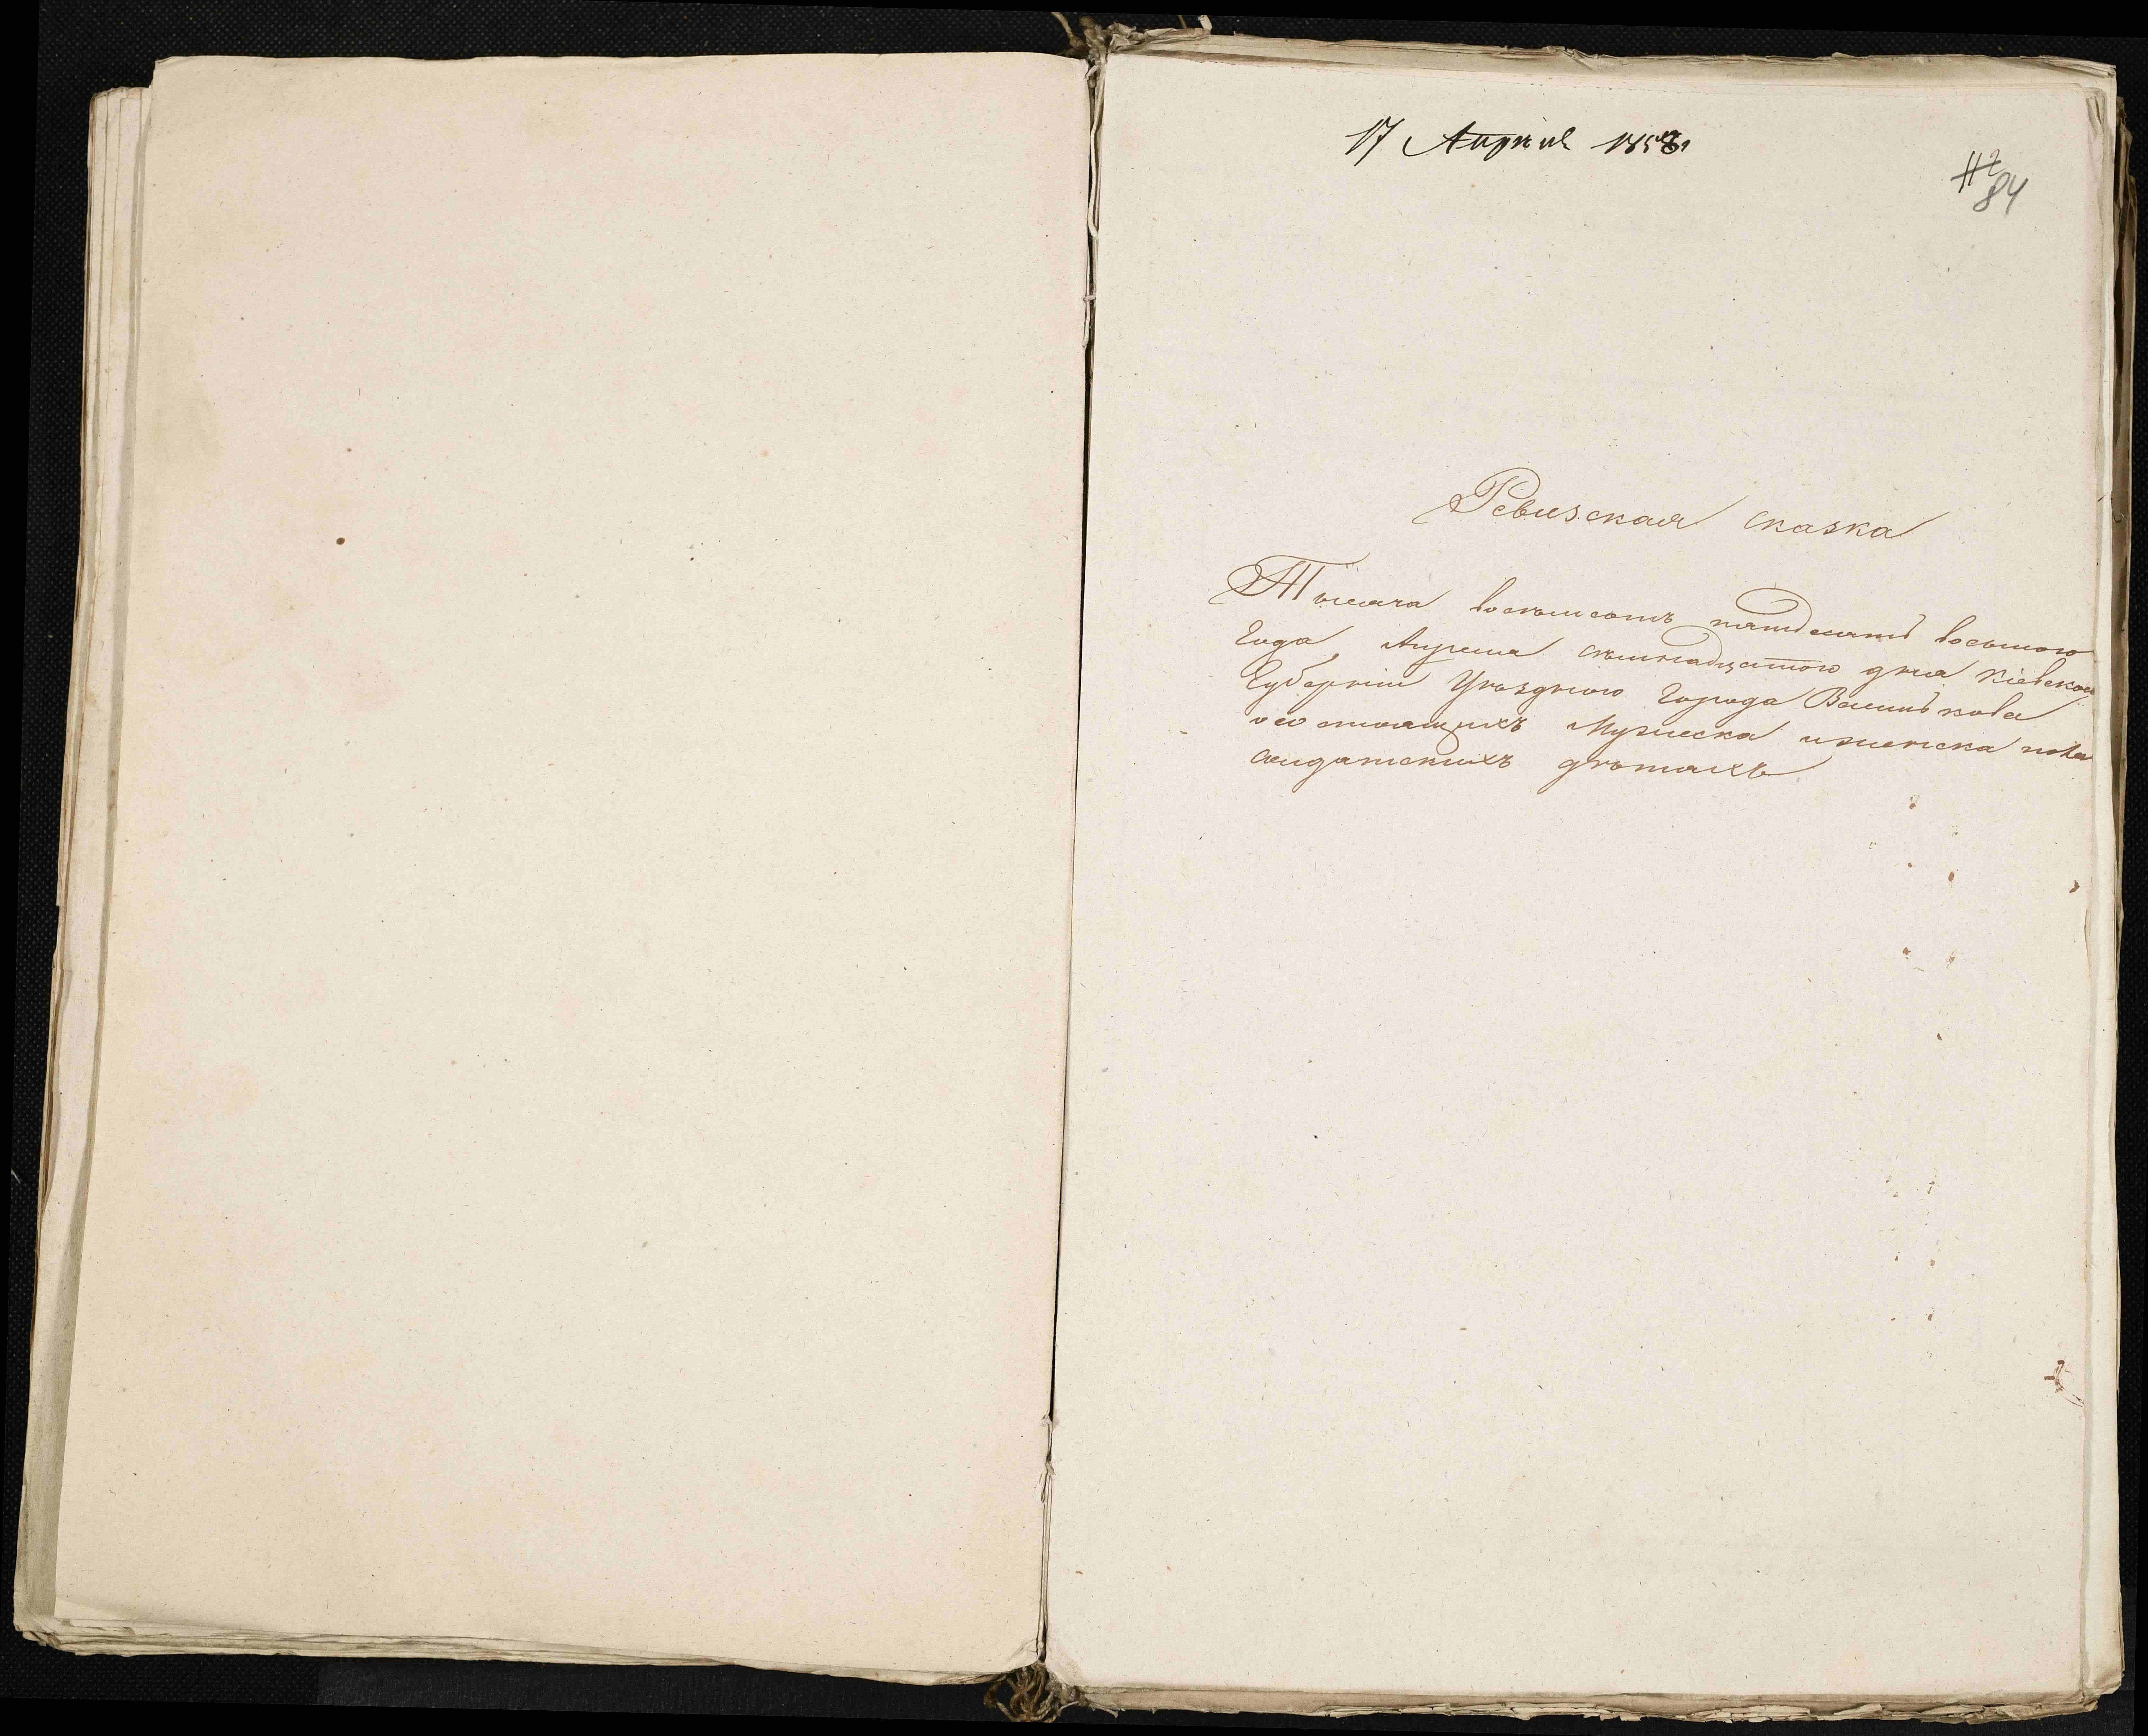 17 Апреля 1858.
84
Ревизская сказка
Тысяча восъмсотъ пятдесятъ восьмого
Года, Апреля семнадцатого дня Кіевской
Губерніи Уѣзднаго Города Василькова
о состоящихъ Мужеска и женска пола
салдатскихъ дѣтяхъ